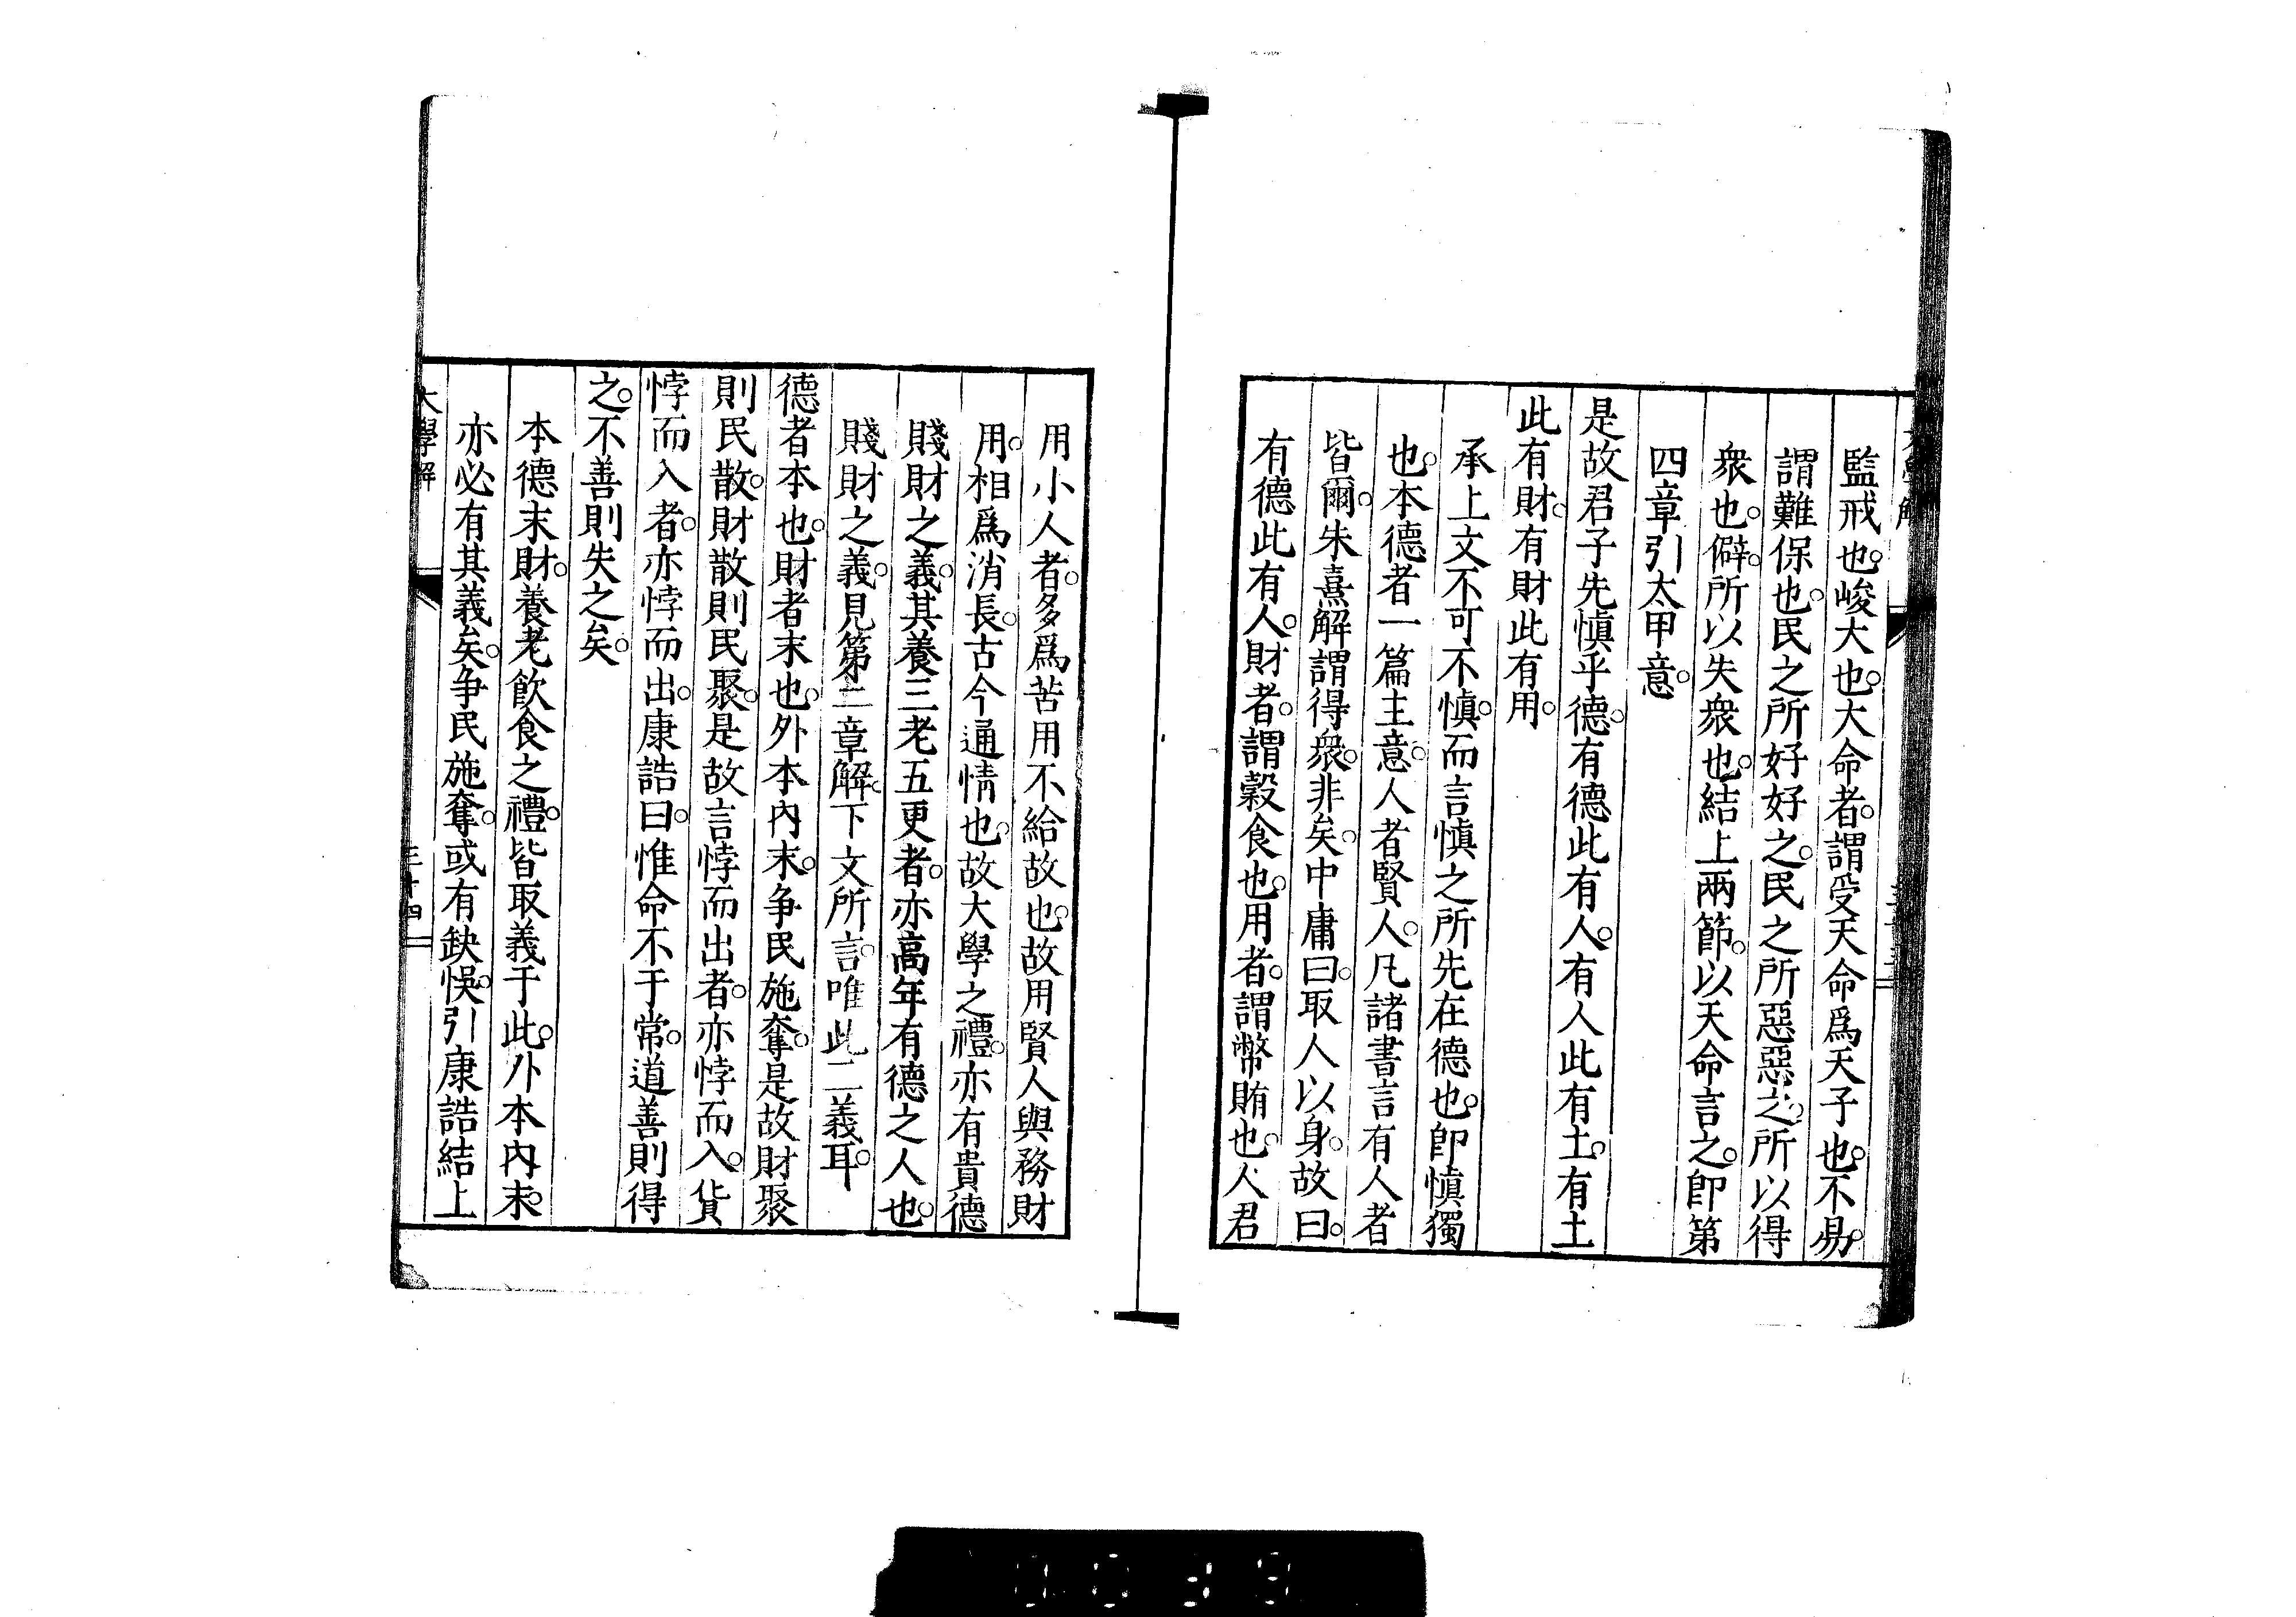 監戒也。峻大也。大命者。謂受天命爲天子也。不易。
謂難保也。民之所好好之。民之所惡惡之。所以得
衆也。僻。所以失衆也。結上兩節。以天命言之。卽第
四章引太甲意。
是故君子先愼乎德。有德此有人。有人此有土。有土
此有財。有財此有用。
承上文不可不愼。而言愼之所先在德也。卽愼獨
也。本德者一篇主意。人者賢人。凡諸書言有人者
皆爾。朱熹解謂得衆。非矣。中庸曰。取人以身。故曰。
有德此有人。財者。謂穀食也。用者。謂幣賄也。人君
用小人者。多爲苦用不給故也。故用賢人與務財
用。相爲消長。古今通情也。故大學之禮。亦有貴德
賤財之義。其養三老五更者。亦高年有德之人也。
賤財之義。見第二章解。下文所言。唯此二義耳。
德者本也。財者末也。外本內末。爭民施奪。是故財聚
則民散。財散則民聚。是故言悖而出者。亦悖而入。貨
悖而入者。亦悖而出。康誥曰。惟命不于常。道善則得
之。不善則失之矣。
本德末財。養老飮食之禮。皆取義于此。外本內末。
亦必有其義矣。爭民施奪。或有缺悞。引康誥結上
大學解
三十四